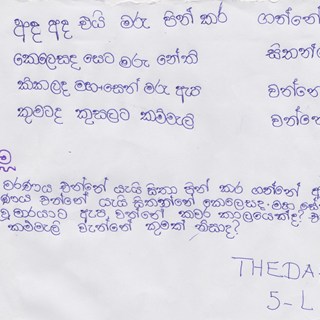 අද අද එයි මරු පින් කර ගන්නේ
කෙලෙසද සෙට මරු නේති සිතන්
කිකලද මහසෙන් මරු ඇප වන්නේ
කුමටද කුසලට කම්මැලි වන්නේ
මරණය එන්නේ යැයි සිතා පින් කර ගන්නේ
ණය එන්නේ යැයි සිතන්නේ කෙලෙසද. මහ සේ
වූ මාරයාට ඇප වන්නේ කවර කාලයෙන්ද?
කම්මැලි වැන්නේ කුමක් නිසාද?
THEDA
5-L